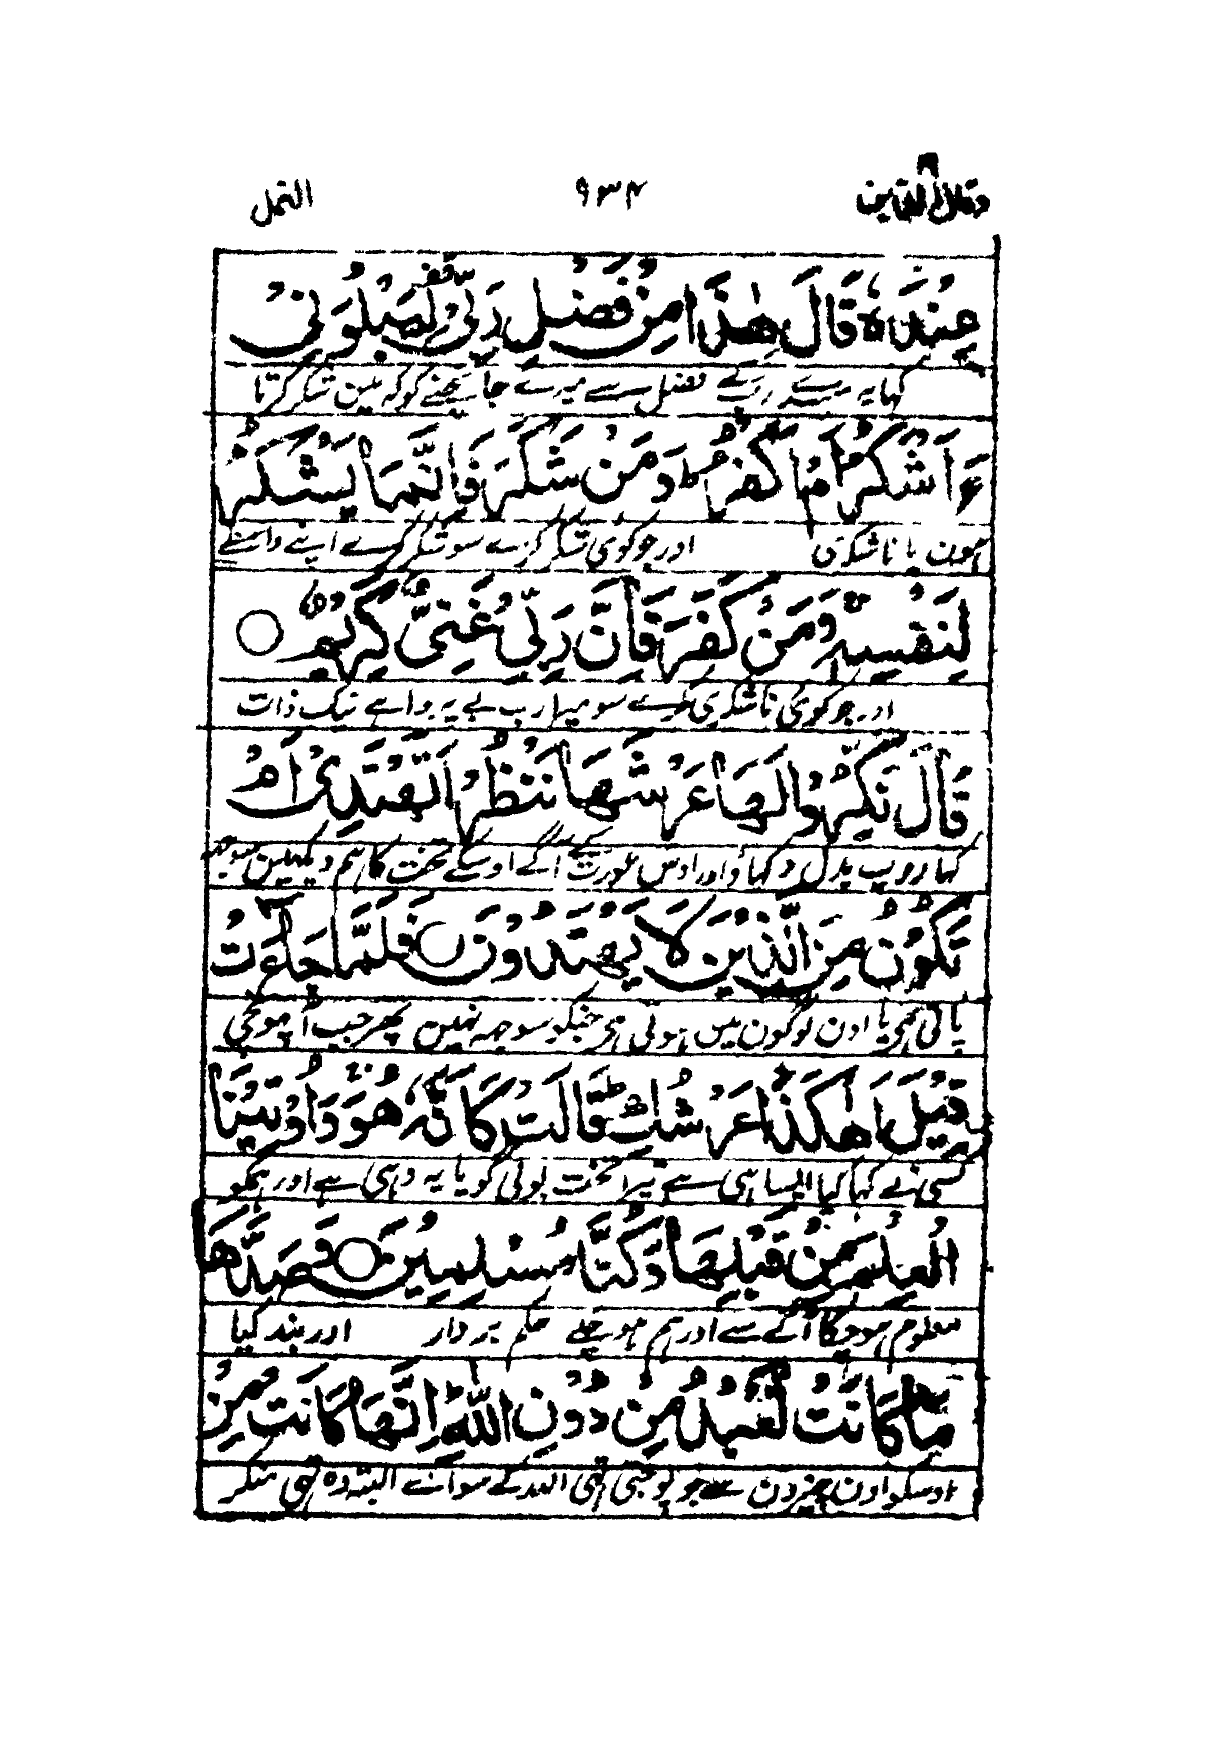 وقال الذین ۹۳۴ النمل
عِنْدَهٗ قَالَ هٰذَا مِنْ فَضْلِ رَبِّیْ قف لِیَبْلُوَنِیْ
کہا یہ میرے رب کے فضل سے میرے جانچنے کو کہ مین شکر کرتا
ءَاَشْکُرُ اَمْ اَکْفُرُ ط وَمَنْ شَکَرَ فَاِنَّمَا یَشْکُرُ
ہون یا ناشکری اور جو کوئی شکر کرے سو شکر کرے اپنے واسطے
لِنَفْسِهٖ وَمَنْ کَفَرَ فَاِنَّ رَبِّیْ غَنِیٌّ کَرِیْمٌ ○
اور جو کوئی ناشکری کرے سو میرا رب بے پروا ہے نیک ذات
قَالَ نَکِّرُوْا لَهَا عَرْشَهَا نَنْظُرْ اَتَهْتَدِیْ اَمْ
کہا روپ بدل دکھاؤ اور اوس عورت کے آگے اوسکے تخت کا ہم دیکھین سوجھ
تَکُوْنُ مِنَ الَّذِیْنَ لَا یَهْتَدُوْنَ ○ فَلَمَّا جَآءَتْ
پاتی ہی یا اون لوگون میں ہوتی ہی جنکو سوجھ نہین پھر جب آ پہونچی
قِیْلَ اَهٰکَذَا عَرْشُكِ ط قَالَتْ کَاَنَّهٗ هُوَ وَاُوْتِیْنَا
کسی نے کہا کیا ایسا ہی ہے تیرا تخت بولی گویا یہ وہی ہے اور ہمکو
الْعِلْمَ مِنْ قَبْلِهَا وَکُنَّا مُسْلِمِیْنَ ○ وَصَدَّهَا
معلوم ہوچکا آگے سے اور ہم ہوچکے حکم بردار اور بند کیا
مَا کَانَتْ تَّعْبُدُ مِنْ دُوْنِ اللّٰهِ ط اِنَّهَا کَانَتْ مِنْ
اوسکو اون چیزون سے جو پوجتی تھی اللہ کے سوائے البتہ وہ تھی منکر